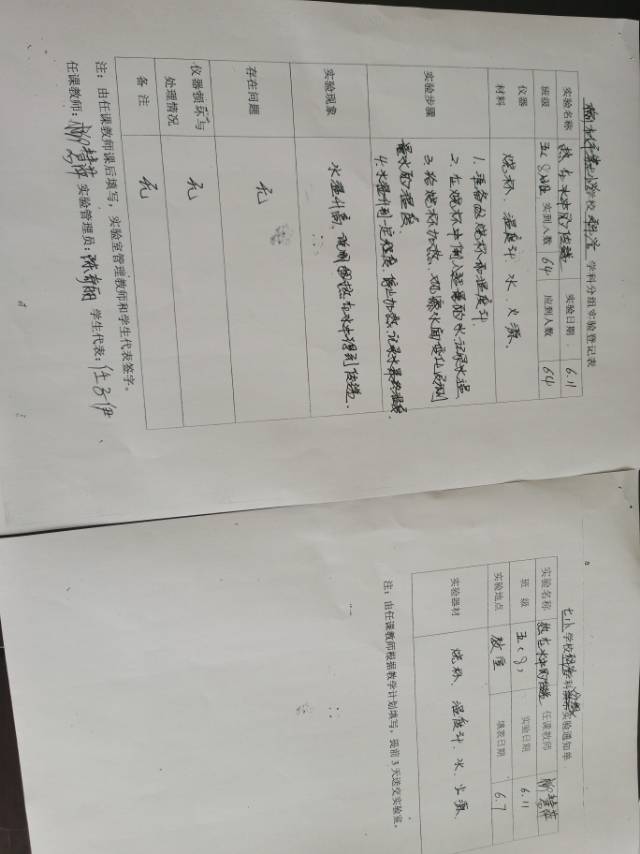 学校 科学 学科分组实验登记表
实验名称 热在水中的传递 实验日期 6.11
班级 五(8)班 实到人数 64 应到人数 64
仪器材料 烧杯、温度计、水、火源、
实验步骤 1. 准备好烧杯和温度计.
2. 在烧杯中倒入适量的水,记录水温
3. 给烧杯加热,观察水面变化及测
量水的温度.
4. 水温升到一定程度,停止加热,记录水最终温度.
实验现象 水温升高,说明热在水中得到传递.
存在问题 无
仪器损坏与处理情况 无
备注 无
注:由任课教师课后填写,实验室管理教师和学生代表签字。
任课教师: 实验管理员: 学生代表:
七小 学校 科学 学科 分组 实验通知单
实验名称 热在水中的传递 任课教师
班级 五(8) 实验日期 6.11
实验地点 教室 填表日期 6.7
实验器材 烧杯、温度计、水、火源、
注:由任课教师根据教学计划填写,提前3天送交实验室。